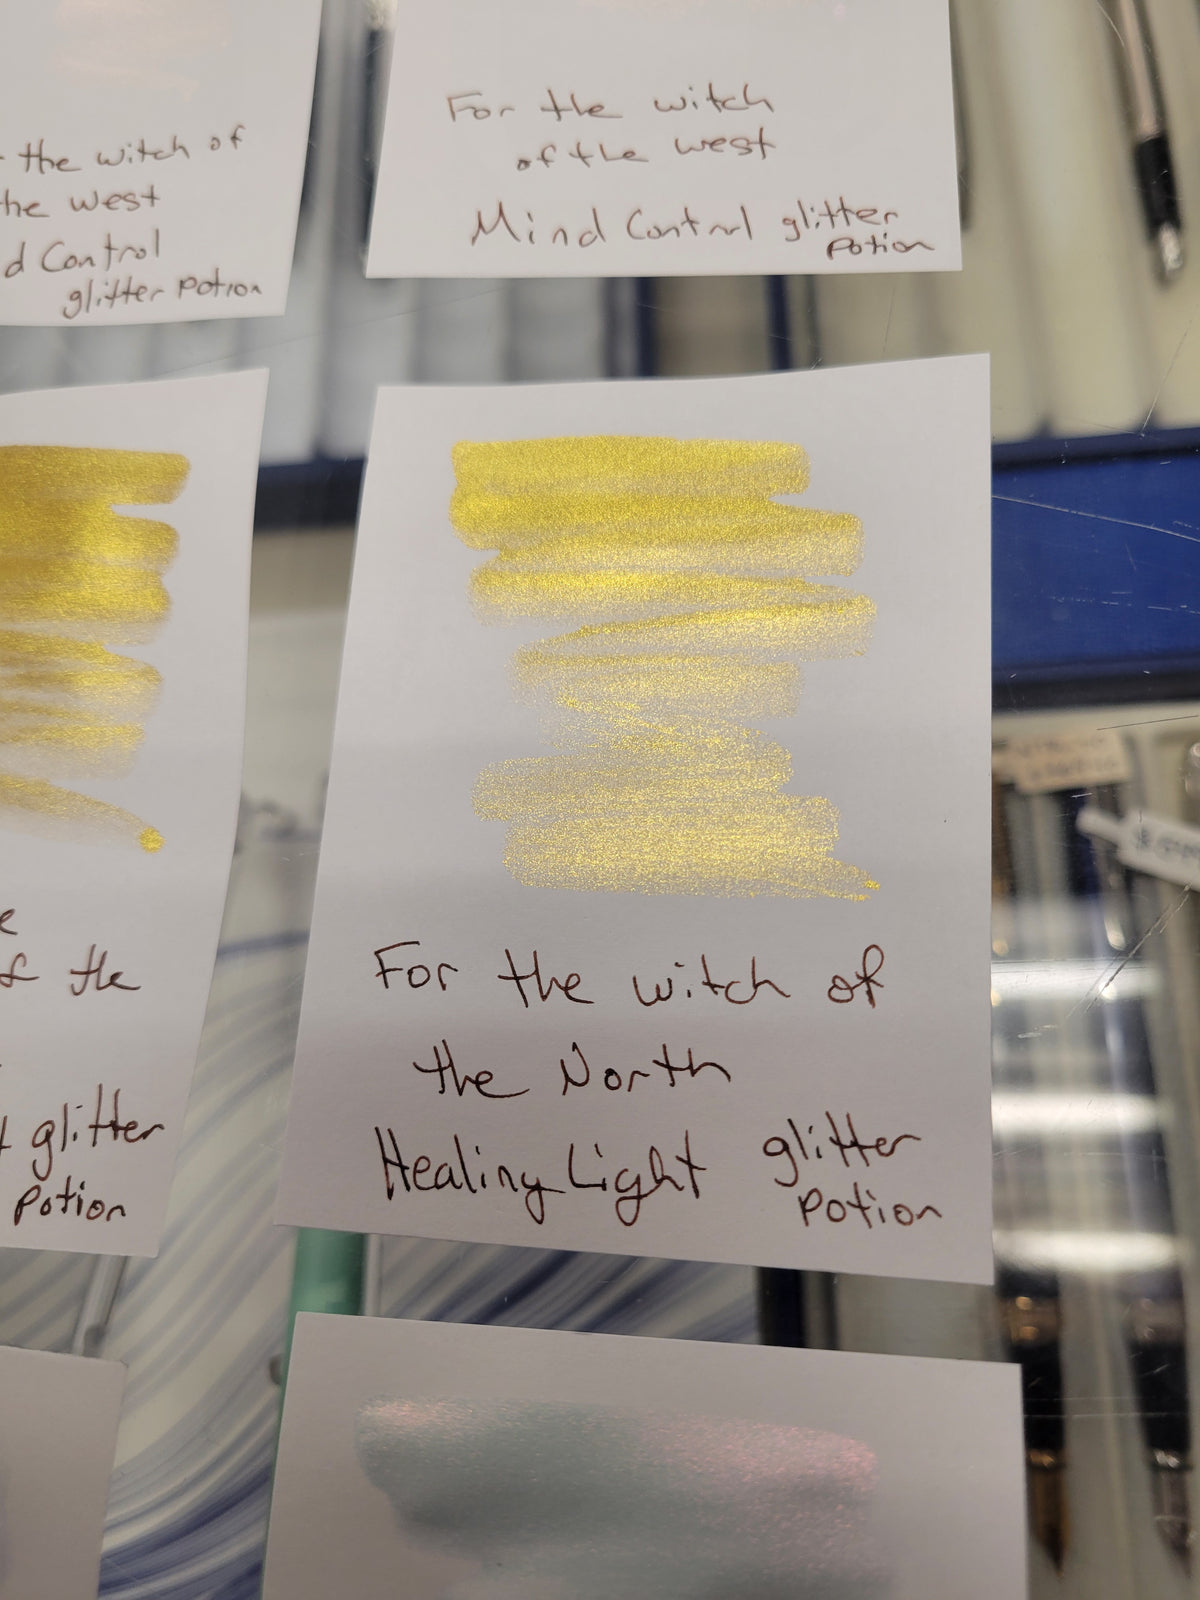 the witch of
the west
d Control
glitter potion
For the witch
of the west
Mind Control glitter
potion
e
f the
t glitter
potion
For the witch of
the North
Healing Light glitter
potion